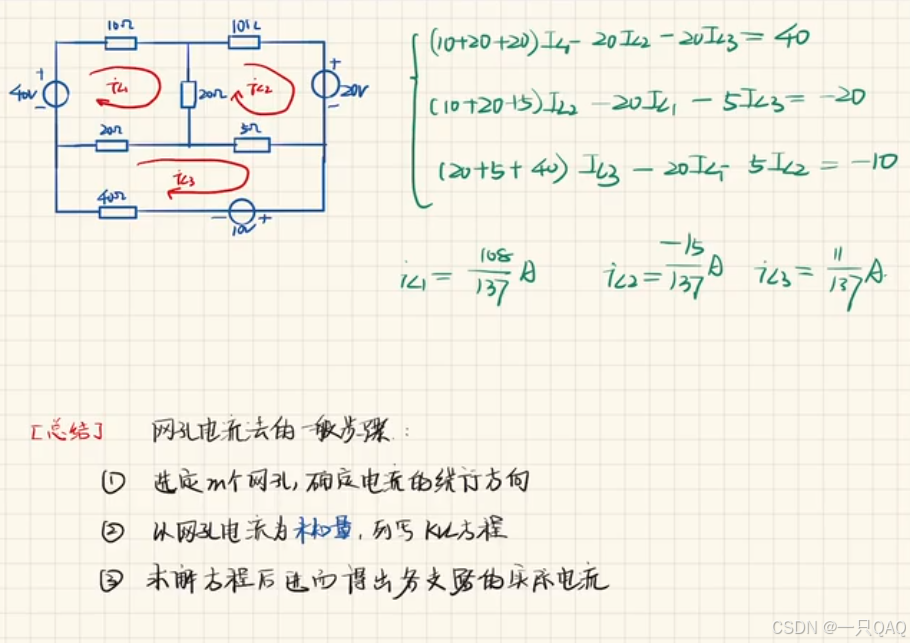 10Ω 10Ω
+ 40V - iL1 20Ω iL2 + 20V -
20Ω 5Ω
iL3
40Ω - 10V +
(10+20+20)IL1 - 20IL2 - 20IL3 = 40
(10+20+5)IL2 - 20IL1 - 5IL3 = -20
(20+5+40) IL3 - 20IL1 - 5IL2 = -10
iL1 = 108/137 A iL2 = -15/137 A iL3 = 11/137 A.
[总结] 网孔电流法的一般步骤:
① 选定m个网孔,确定电流的绕行方向
② 以网孔电流为未知量,列写KVL方程
③ 求解方程后进而得出各支路的实际电流
CSDN @一只QAQ